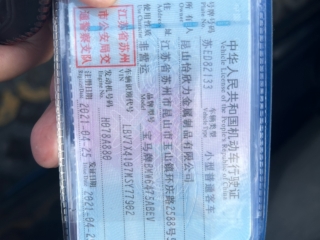 中华人民共和国机动车行驶证
Vehicle License of the People's Republic of China
号牌号码 苏ED82133
车辆类型 小型普通客车
所有人 昆山怡欣力金属制品有限公司
住址 江苏省苏州市昆山市玉山镇环庆路2588号
使用性质 非营运
品牌型号 宝马牌BMW6475ABEV
江苏省苏州
市公安局交
通警察支队
车辆识别代号
发动机号码 H078A880
注册日期 2021-04-25
发证日期